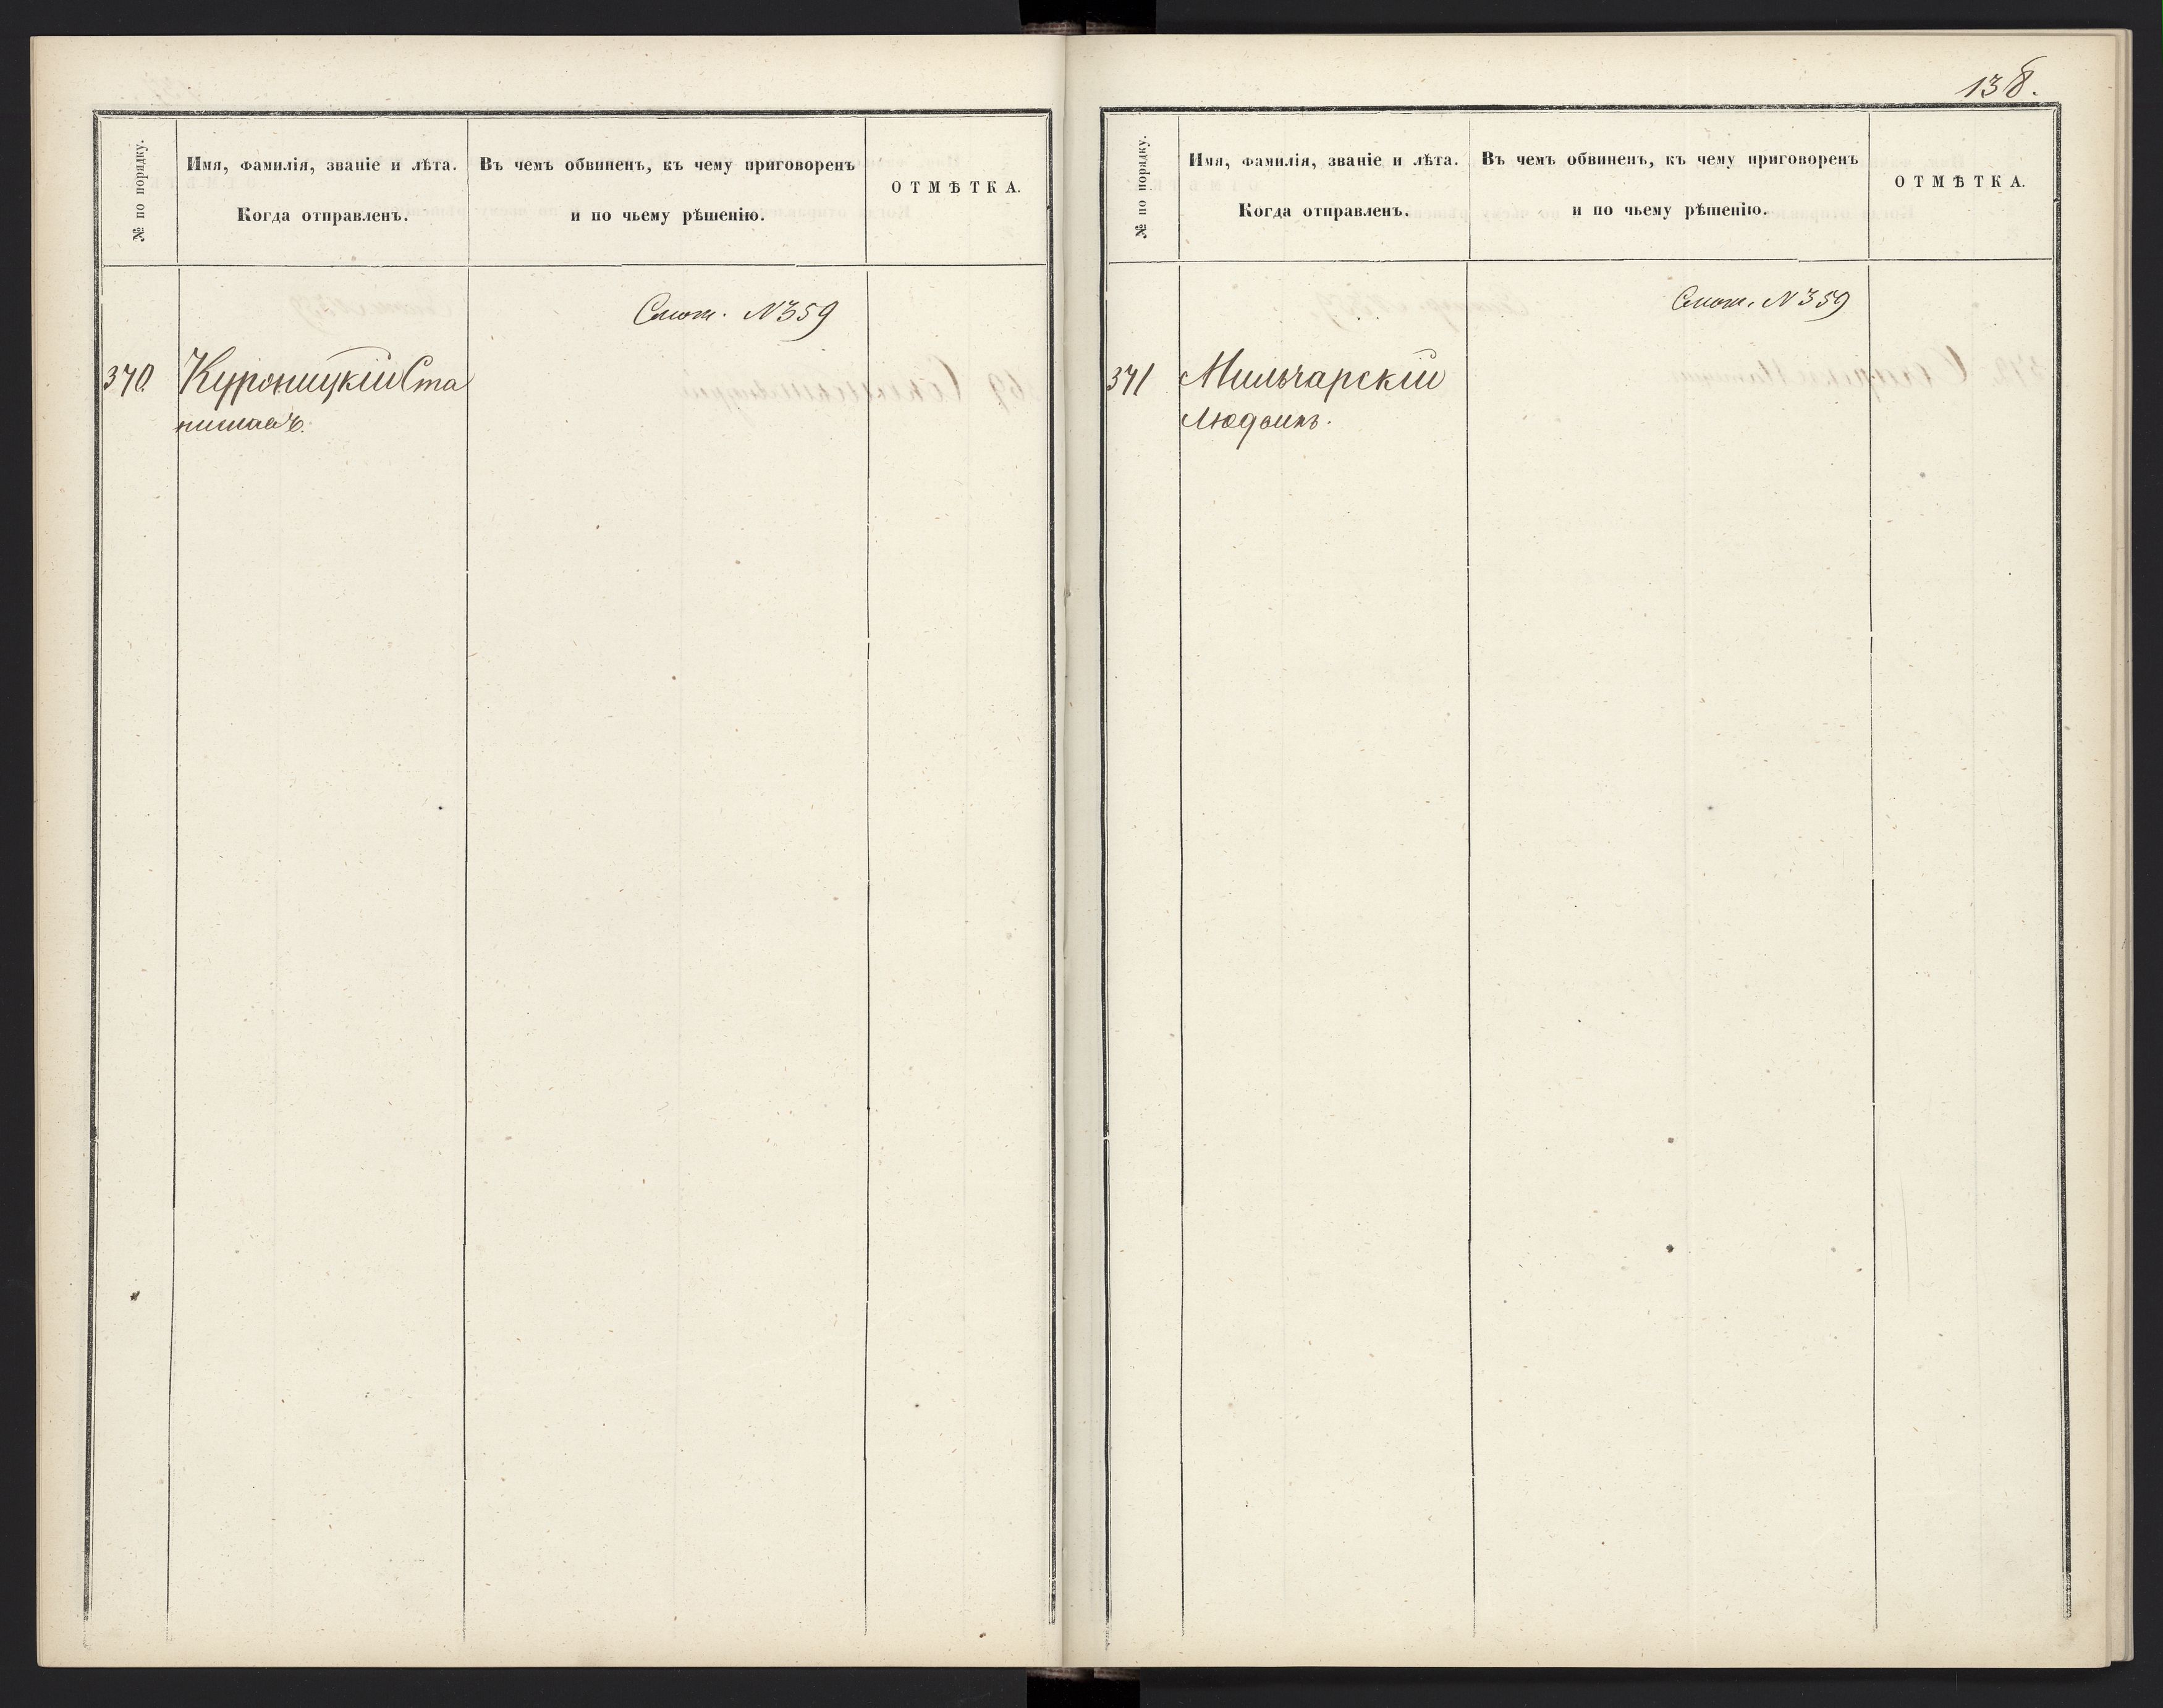 № по порядку.
Имя, фамилія, званіе и лѣта.
Когда отправленъ.
Въ чемъ обвиненъ, къ чему приговоренъ
и по чьему рѣшенію.
ОТМѢТКА.
Смот. №359
370. Куроницкій Ста
ниславъ.
138.
№ по порядку.
Имя, фамилія, званіе и лѣта.
Когда отправленъ.
Въ чемъ обвиненъ, къ чему приговоренъ
и по чьему рѣшенію.
ОТМѢТКА.
Смот. №359
371 Мильчарскій
Людвикъ.